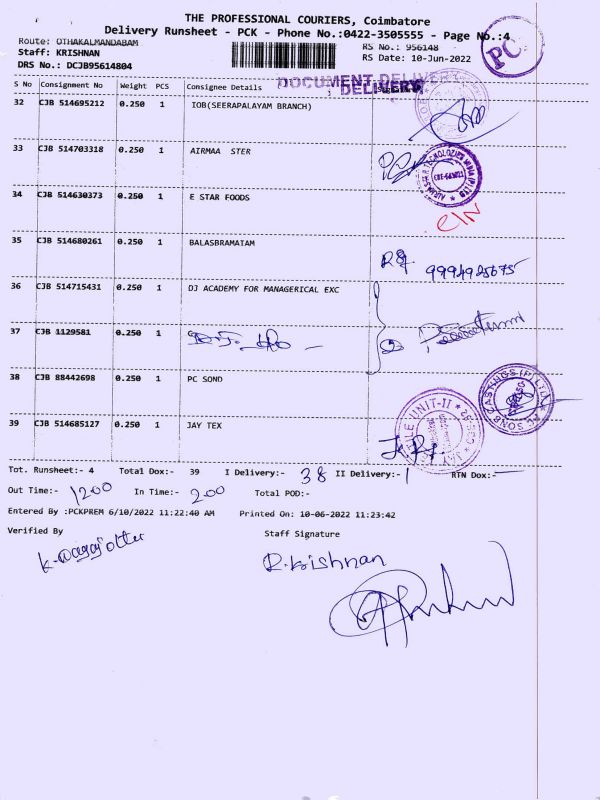 THE PROFESSIONAL COURIERS, Coimbatore
Delivery Runsheet - PCK - Phone No.:0422-3505555 - Page No.:4
Route: OTHAKALMANDABAM
RS No.: 956148
Staff: KRISHNAN
RS Date: 10-Jun-2022
DRS No.: DCJB95614804
DOCUMENT DELIVERY
DELIVERY
S No Consignment No Weight PCS Consignee Details Signature
32 CJB 514695212 0.250 1 IOB(SEERAPALAYAM BRANCH)
33 CJB 514703318 0.250 1 AIRMAA STER
34 CJB 514630373 0.250 1 E STAR FOODS
35 CJB 514680261 0.250 1 BALASBRAMAIAM
9994925675
36 CJB 514715431 0.250 1 DJ ACADEMY FOR MANAGERICAL EXC
37 CJB 1129581 0.250 1
38 CJB 88442698 0.250 1 PC SOND
39 CJB 514685127 0.250 1 JAY TEX
Tot. Runsheet:- 4 Total Dox:- 39 I Delivery:- 38 II Delivery:- 1 RTN Dox:-
Out Time:- 1200 In Time:- 200 Total POD:-
Entered By :PCKPREM 6/10/2022 11:22:40 AM Printed On: 10-06-2022 11:23:42
Verified By Staff Signature
R.Krishnan